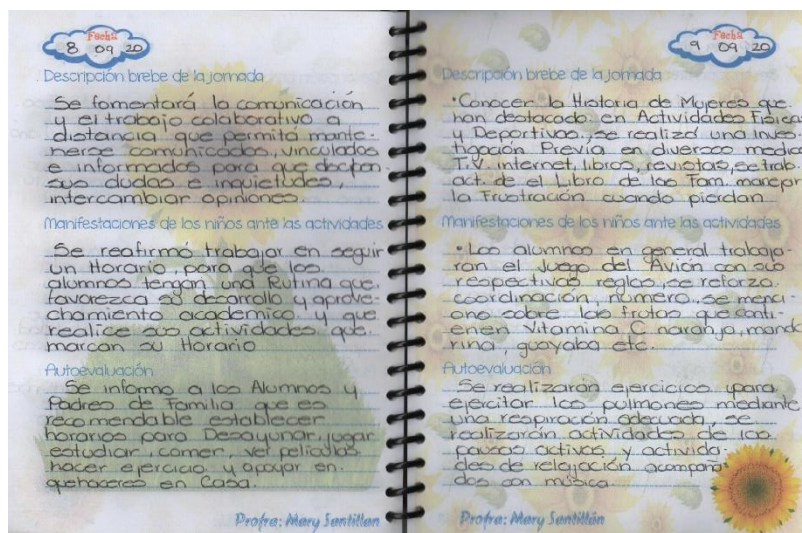 Fecha
8 09 20
Descripción brebe de la jornada
Se fomentará la comunicación
y el trabajo colaborativo a
distancia que permita mante-
nerse comunicados, vinculados
e informados para que
sus dudas e inquietudes,
intercambiar opiniones
Manifestaciones de los niños ante las actividades
Se reafirmó trabajar en seguir
un Horario, para que los
alumnos tengan una Rutina que
favorezca su desarrollo y aprove-
chamiento academico y que
realice sus actividades que
marcan su Horario
Autoevaluación
Se informo a los Alumnos y
Padres de Familia que es
recomendable establecer
horarios para Desayunar, jugar
estudiar, comer, ver películas
hacer ejercicio y apoyar en
quehaceres en Casa.
Profra: Mary Santillán
Fecha
9 09 20
Descripción brebe de la jornada
•Conocer la Historia de Mujeres que
han destacado en Actividades Físicas
y Deportivas, se realizó una Inves-
tigación Previa en diversos medios
T.V. internet, libros, revistas, se trab.
act. de el Libro de las Fam. manejar
la Frustración cuando pierdan
Manifestaciones de los niños ante las actividades
• Los alumnos en general trabaja-
ron el Juego del Avión con sus
respectivas reglas, se reforzo
coordinación, número, se menci-
ono sobre las frutas que conti-
enen Vitamina C naranja, manda
rina, guayaba etc.
Autoevaluación
Se realizarón ejercicios para
ejercitar los pulmones mediante
una respiración adecuada, se
realizarón actividades de las
pausas activas y activida-
des de relajación acompaña-
dos con música.
Profra: Mary Santillán